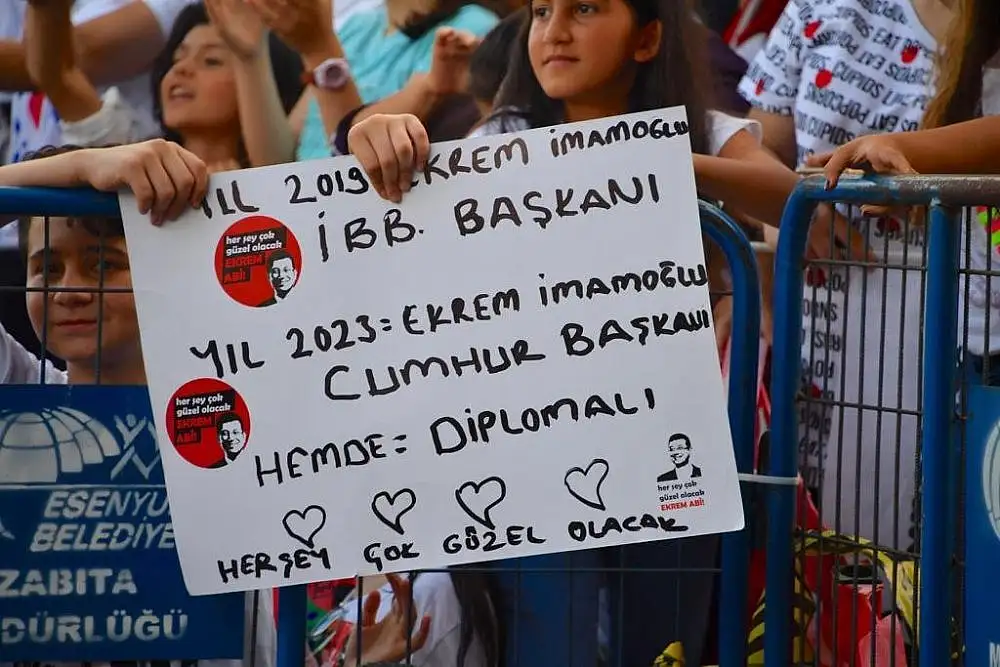 YIL 2019 EKREM İMAMOĞLU
İBB. BAŞKANI
her şey çok
güzel olacak
EKREM
ABİ!
YIL 2023= EKREM İMAMOĞLU
CUMHUR BAŞKANI
her şey çok
güzel olacak
EKREM
ABİ!
HEMDE= DİPLOMALI
her şey çok
güzel olacak
EKREM ABİ!
HERŞEY ÇOK GÜZEL OLACAK
ESENYU
BELEDİYE
ZABITA
DÜRLÜĞÜ
EAT POPCORN
CUPIDS